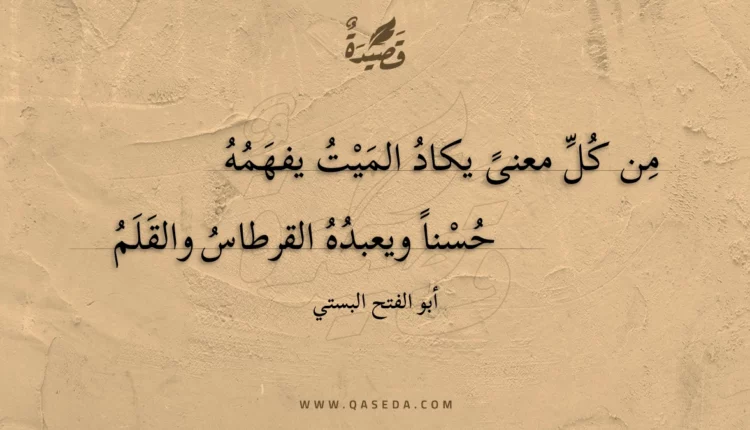 قَصِيْدَةٌ
مِن كُلِّ معنىً يكادُ المَيْتُ يفهَمُهُ
حُسْناً ويعبدُهُ القرطاسُ والقَلَمُ
أبو الفتح البستي
WWW.QASEDA.COM